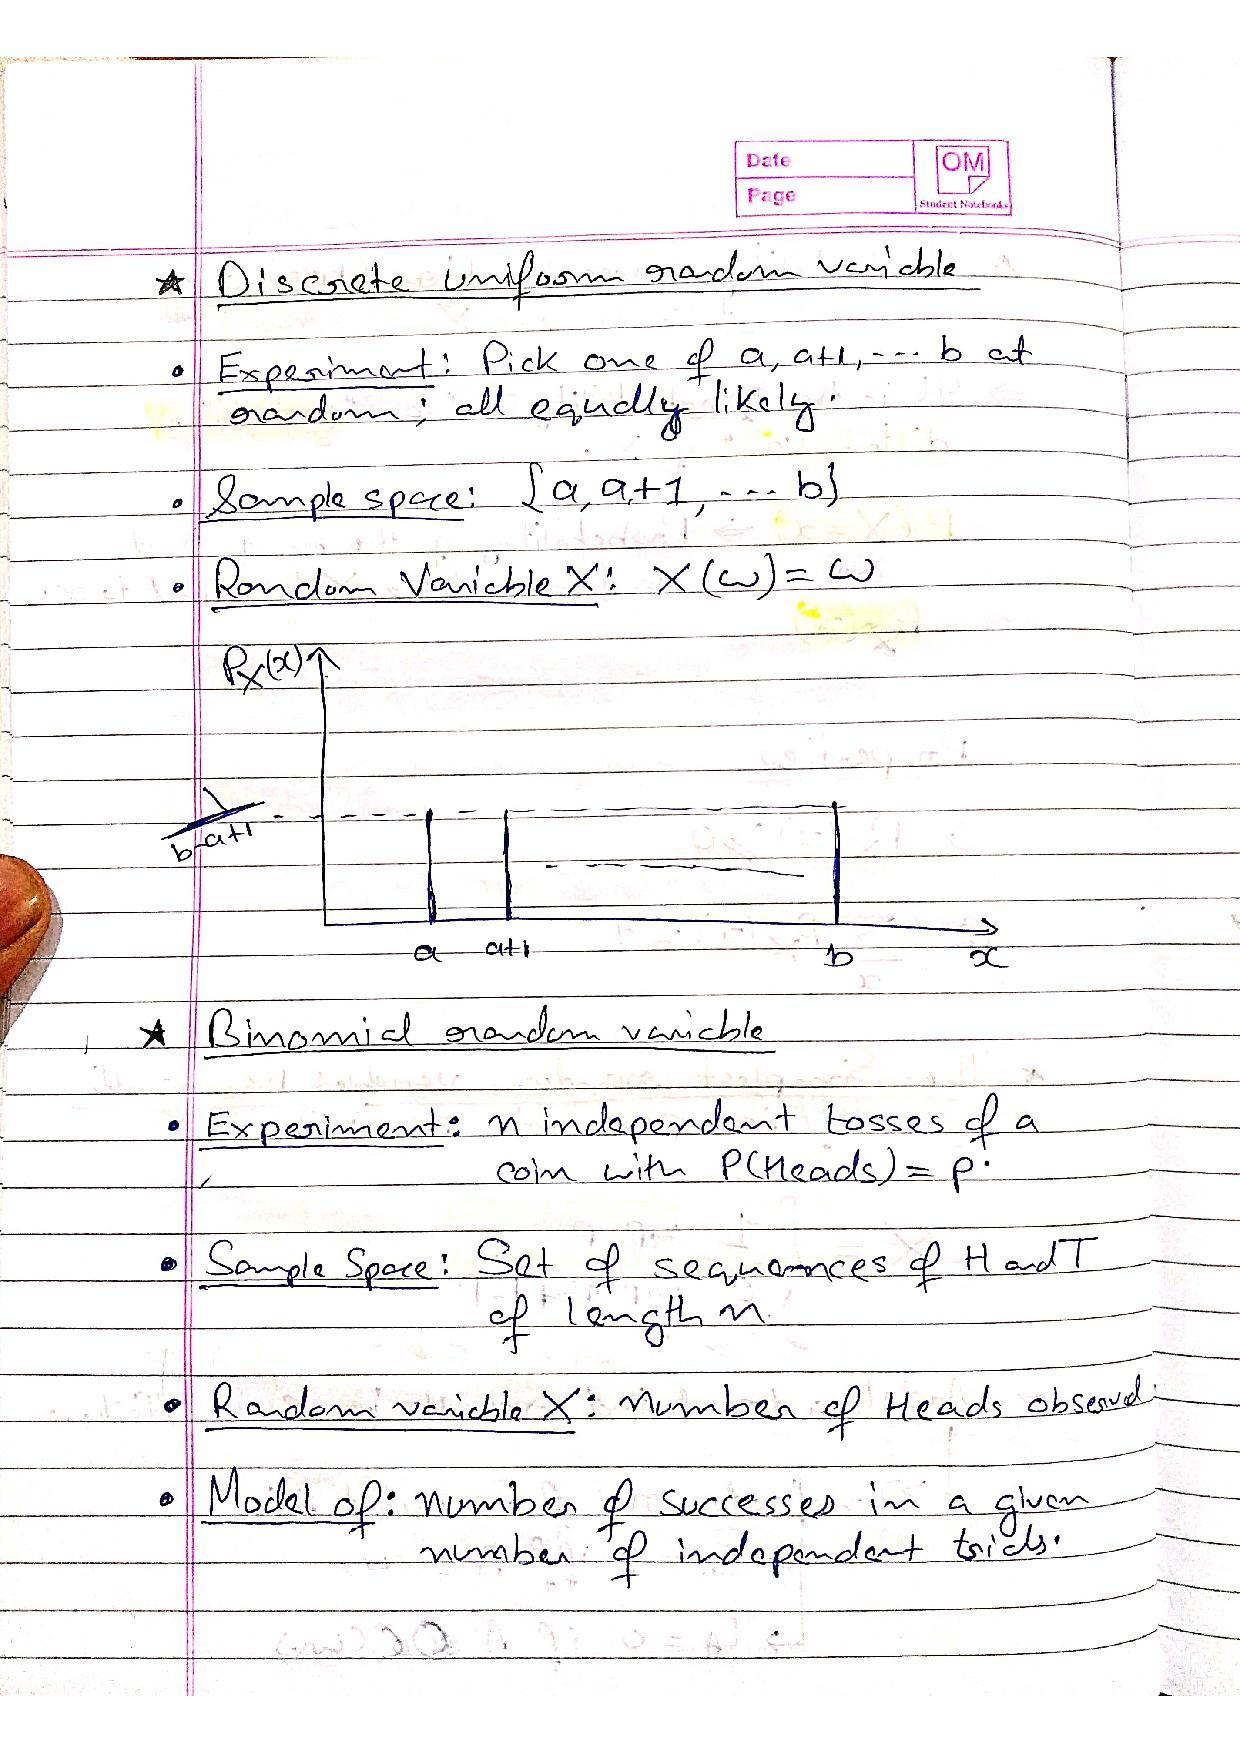 Date
OM
Page
Student Notebooks
★ Discrete uniform random variable
• Experiment: Pick one of a, a+1, ... b at
random; all equally likely.
• Sample space: {a, a+1, ... b}
• Random Variable X: X(ω) = ω
Px(x)
1
b-a+1
a a+1 b x
★ Binomial random variable
• Experiment: n independent tosses of a
coin with P(Heads) = p.
• Sample Space: Set of sequences of H and T
of length n.
• Random variable X: Number of Heads observed.
• Model of: number of successes in a given
number of independent trials.